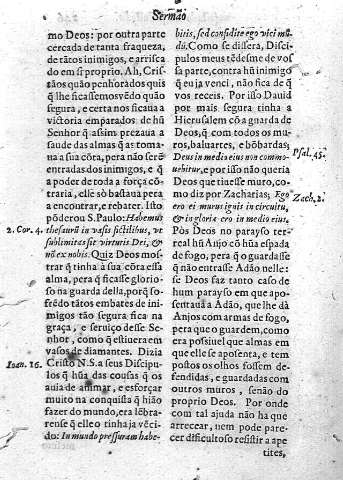 Sermão
mo Deos: por outra parte
cercada de tanta fraqueza,
de tãtos inimigos, e arrisca
do em si proprio. Ah, Cris-
tãos quão penhorados quis
q̃ lhe ficassemos vẽdo quão
segura, e certa nos ficaua a
victoria emparados de hũ
Senhor q̃ assim prezaua a
saude das almas q̃ as toma-
ua a sua cõta, pera não serẽ
entradas dos inimigos, e q̃
a poder de toda a força cõ-
traria, elle sô bastaua pera
a encontrar, e rebater. Isto
põderou S. Paulo: Habemus
2. Cor. 4. thesaurũ in vasis fictilibus, vt
sublimitas sit virtutis Dei, &
nõ ex nobis. Quiz Deos mos-
trar q̃ tinha à sua cõta essa
alma, pera q̃ ficasse glorio-
so na guarda della, porq̃ so-
frẽdo tãtos embates de ini-
migos tão segura fica na
graça, e seruiço desse Se-
nhor, como q̃ estiuera em
vasos de diamantes. Dizia
Ioan. 16. Cristo N. S. a seus Discipu-
los q̃ hũa das cousas q̃ os
auia de animar, e esforçar
muito na conquista q̃ hião
fazer do mundo, era lẽbra-
rense q̃ elle o tinha ja vẽci-
do: In mundo pressuram habe-
bitis, sed confidite ego vici mũ
dũ. Como se dissera, Disci-
pulos meus tẽdesme de vos-
sa parte, contra hũ inimigo
q̃ eu ja venci, não fica de q̃
vos receis. Por isso Dauid
por mais segura tinha a
Hierusalem cõ a guarda de
Deos, q̃ com todos os mu-
ros, baluartes, e bõbardas;
Deus in medio eius non commo- Psal. 45.
uebitur, e por isso não queria
Deos que tiuesse muro, co-
mo diz por Zacharias; Ego Zach. 2.
ero ei murus ignis in circuitu,
& in gloria ero in medio eius.
Pôs Deos no parayso ter-
real hũ Anjo cõ hũa espada
de fogo, pera q̃ o guardasse
q̃ não entrasse Adão nelle:
se Deos faz tanto caso de
hum parayso em que apo-
sentaua a Adão, que lhe dà
Anjos com armas de fogo,
pera que o guardem, como
era possiuel que almas em
que elle se aposenta, e tem
postos os olhos fossem de-
fendidas, e guardadas com
outros muros, senão do
proprio Deos. Por onde
com tal ajuda não ha que
arrecear, nem pode pare-
cer dificultoso resistir a ape
tites,